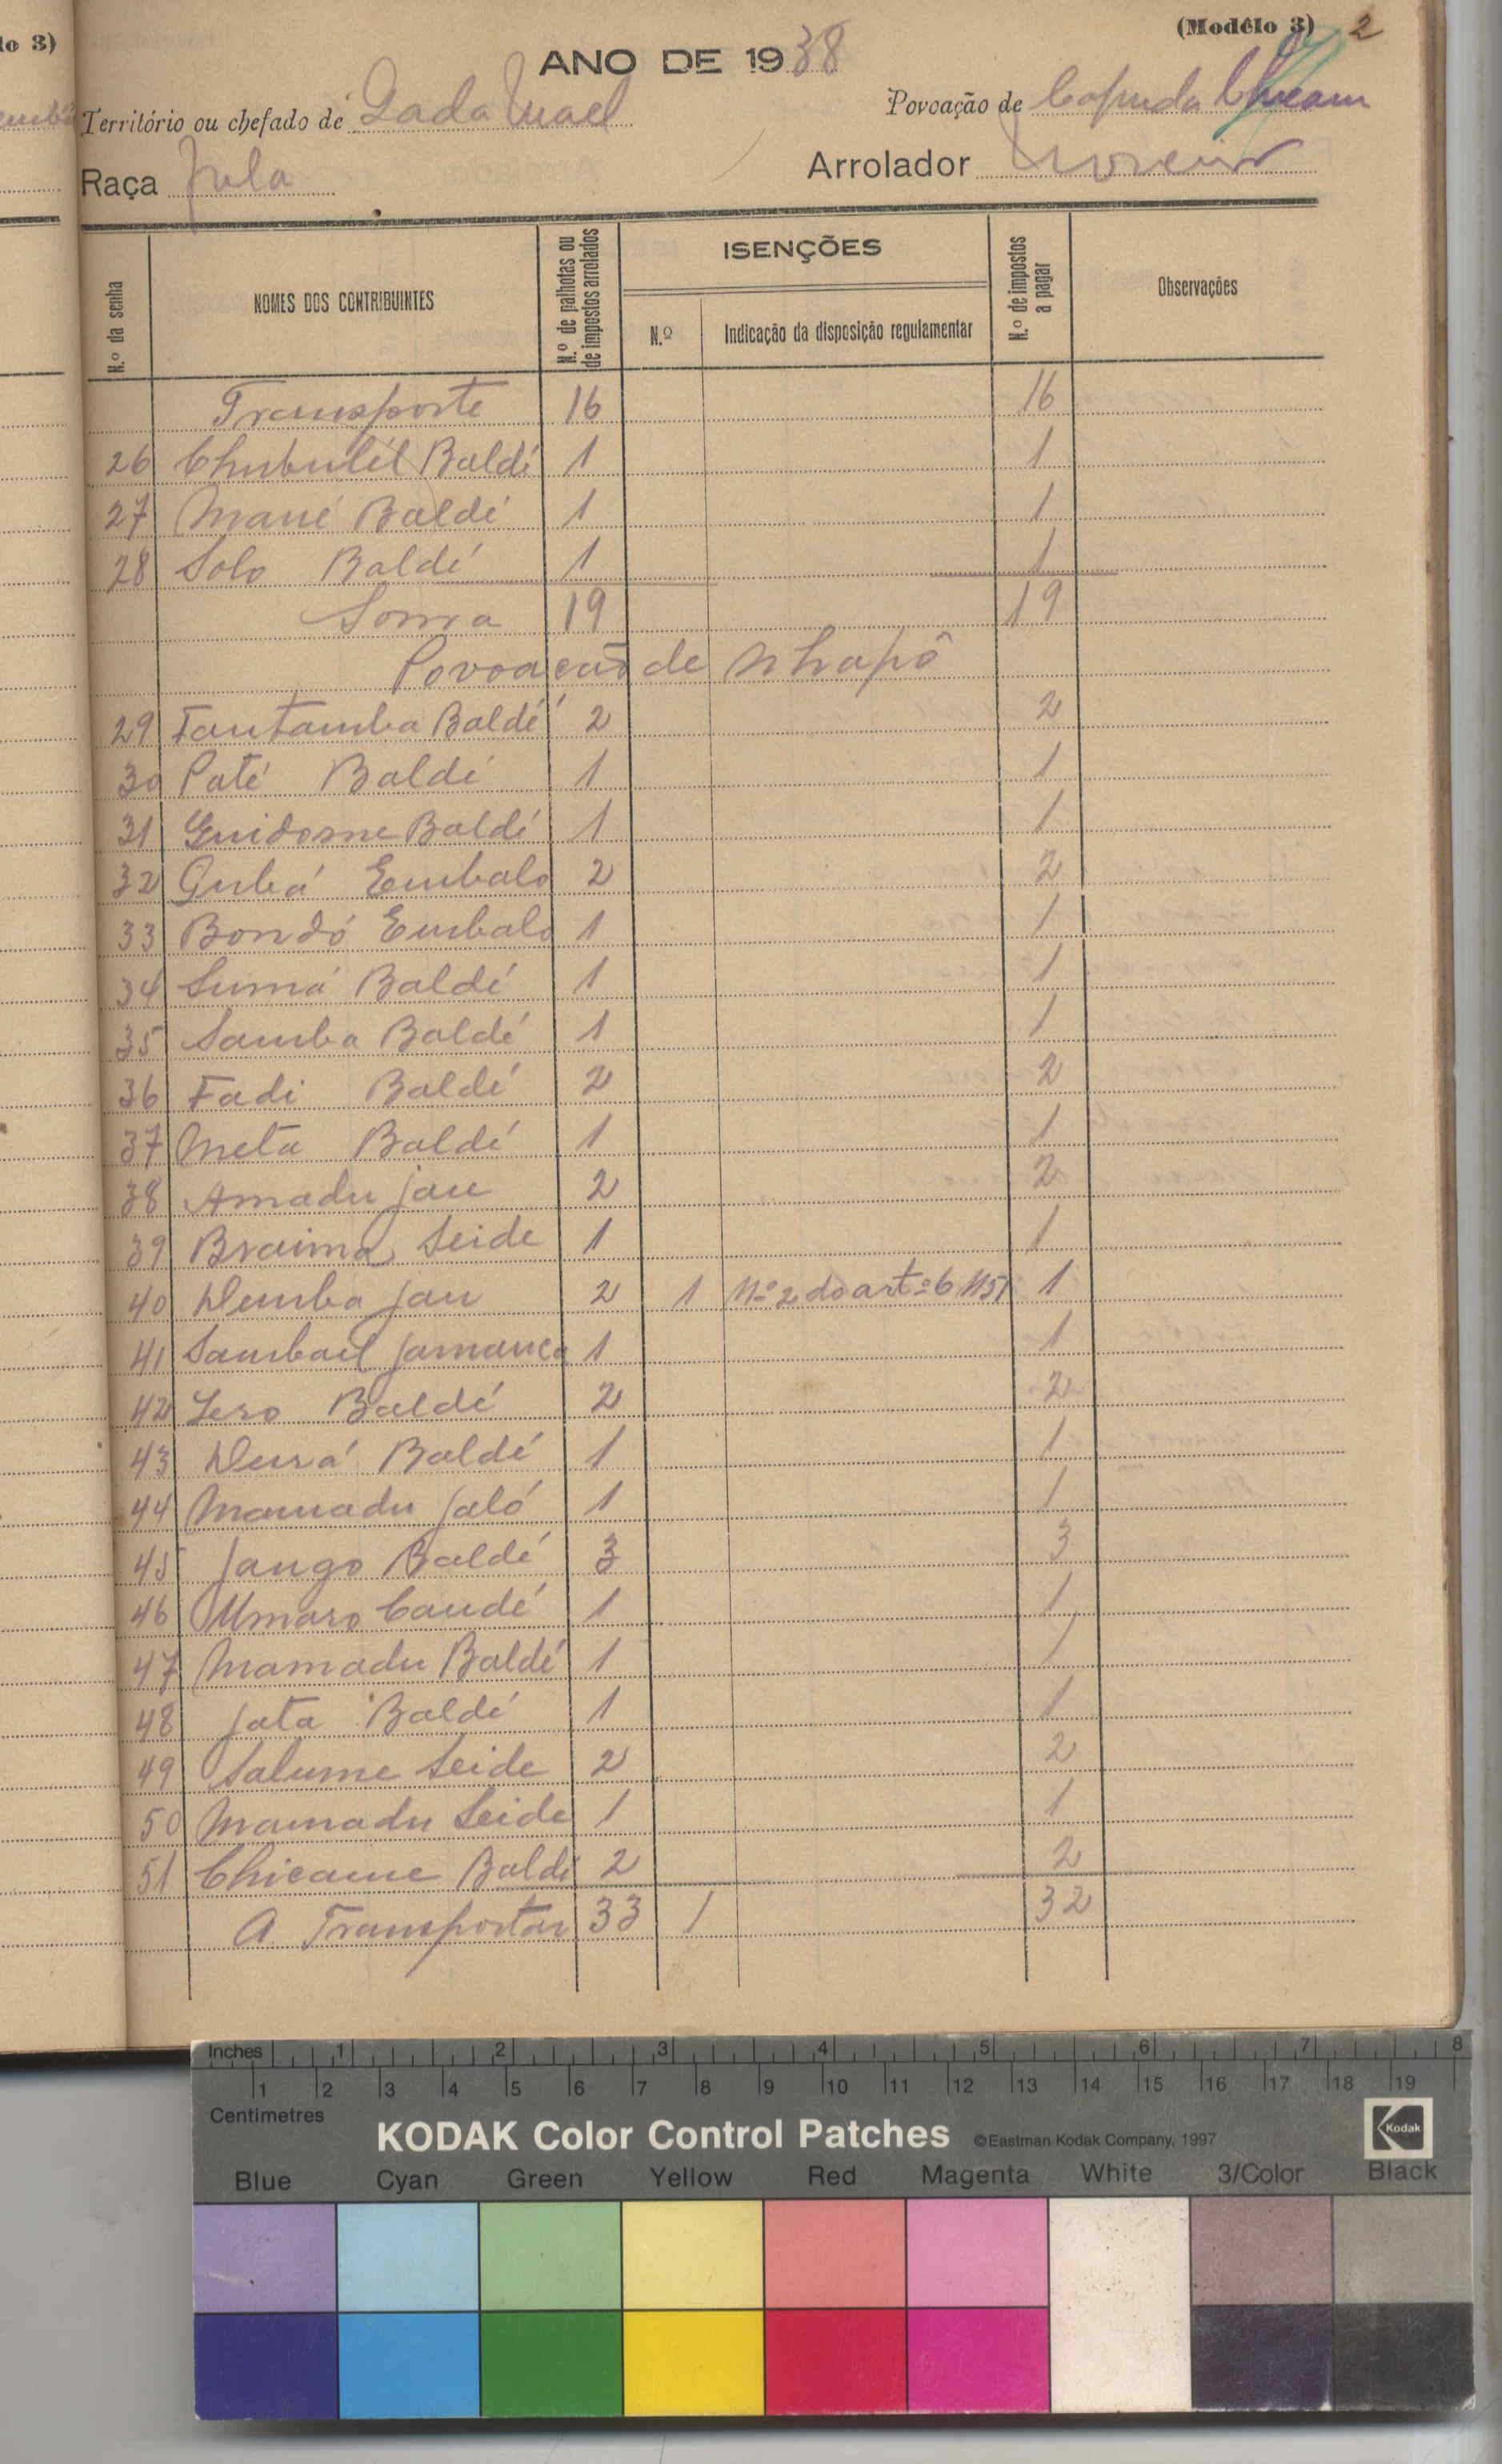 lo 3)
(Modêlo 3) 2
ANO DE 1938
Território ou chefado de Gada Mael
Povoação de Capuda
Raça Fula
Arrolador
N.º da senha
NOMES DOS CONTRIBUINTES
N.º de palhotas ou de impostos arrolados
ISENÇÕES
N.º
Indicação da disposição regulamentar
N.º de impostos a pagar
Observações
Transporte 16 16
26 Chubulél Baldé 1 1
27 Mané Baldé 1 1
28 Solo Baldé 1 1
Soma 19 19
Povoacão de Nhapô
29 Fautamba Baldé 2 2
30 Paté Baldé 1 1
31 Guidome Baldé 1 1
32 Gubá Embalo 2 2
33 Bondó Embalo 1 1
34 Sumá Baldé 1 1
35 Samba Baldé 1 1
36 Fadi Baldé 2 2
37 Meta Baldé 1 1
38 Amadu Jau 2 2
39 Braima Seide 1 1
40 Demba Jau 2 1 Nº 2 do artº 6 1
41 Sambael Jamanca 1 1
42 Lero Baldé 2 2
43 Baldé 1 1
44 Mamadu Jaló 1 1
45 Jango Baldé 3 3
46 Umaro Candé 1 1
47 Mamadu Baldé 1 1
48 Jata Baldé 1 1
49 Salume Seide 2 2
50 Mamadu Seide 1 1
51 Chicame Baldé 2 2
A Transportar 33 1 32
Inches 1 2 3 4 5 6 7 8
1 2 3 4 5 6 7 8 9 10 11 12 13 14 15 16 17 18 19
Centimetres
KODAK Color Control Patches ©Eastman Kodak Company, 1997 Kodak
Blue Cyan Green Yellow Red Magenta White 3/Color Black